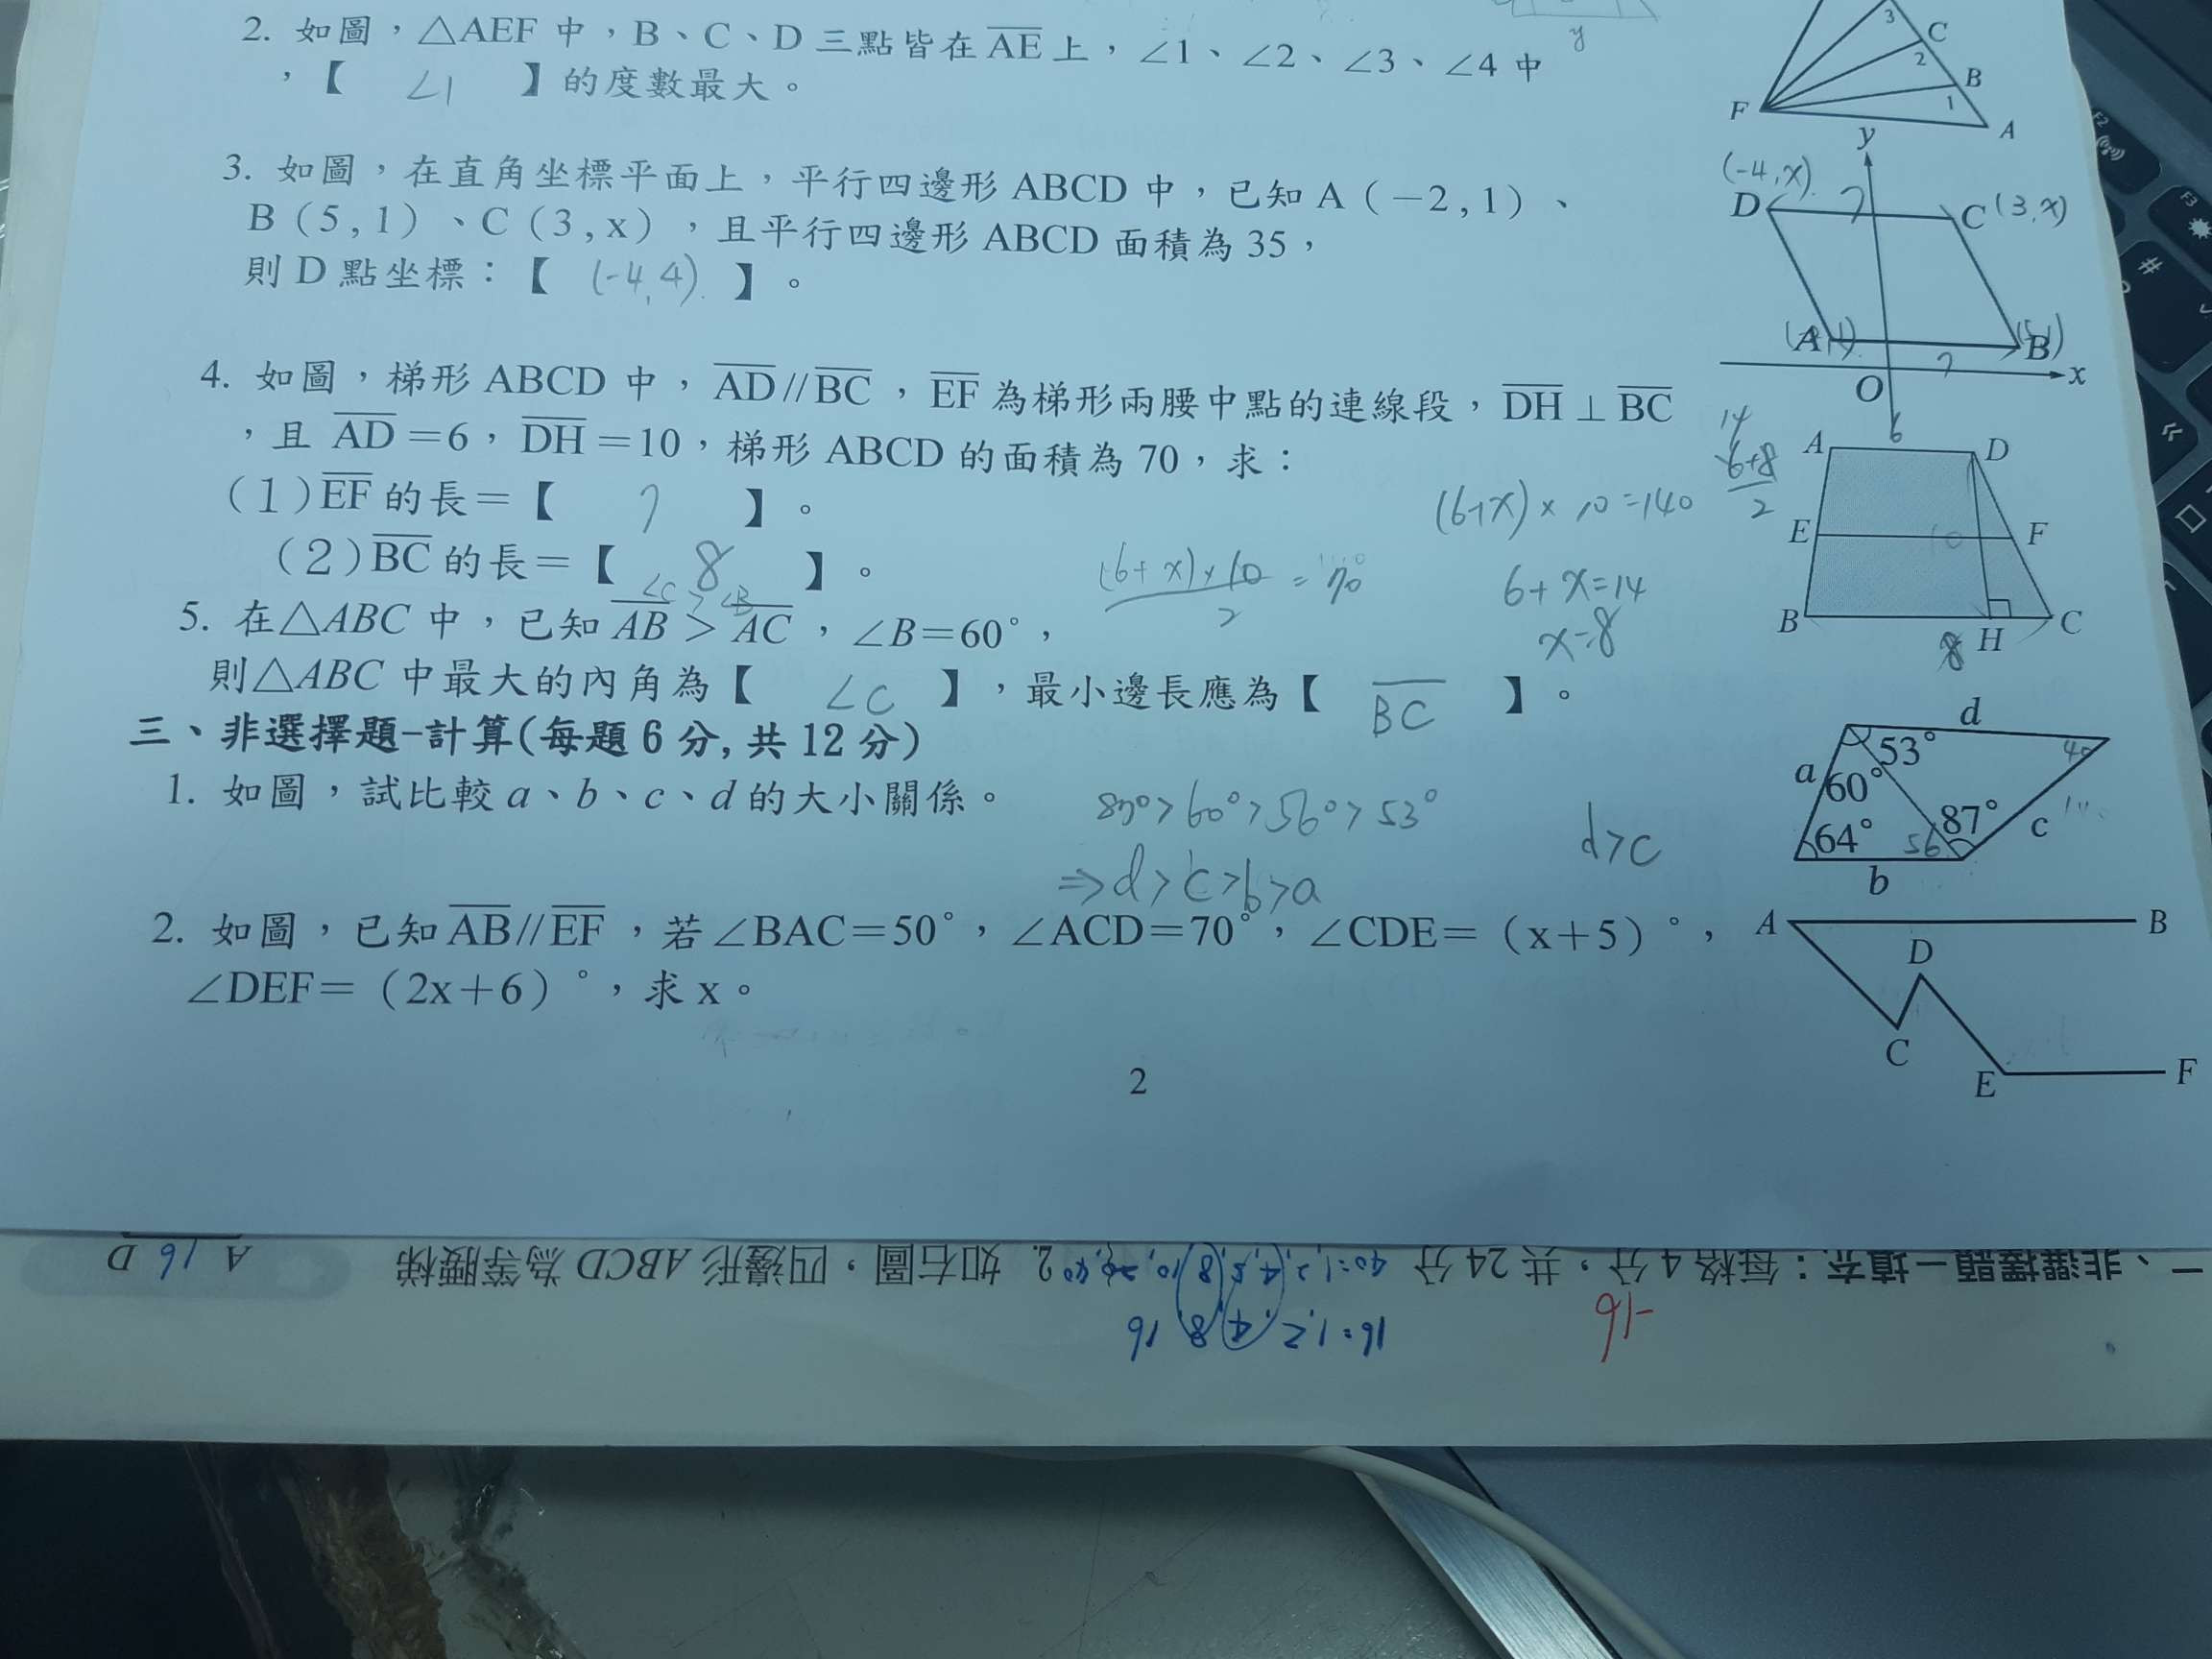 y
2. 如圖，△AEF 中，B、C、D 三點皆在 AE 上，∠1、∠2、∠3、∠4 中
，【 ∠1 】的度數最大。
3 C 2 B 1 A F
3. 如圖，在直角坐標平面上，平行四邊形 ABCD 中，已知 A（－2 , 1）、
B（5 , 1）、C（3 , x），且平行四邊形 ABCD 面積為 35，
則 D 點坐標：【 (-4,4) 】。
y
(-4,x)
D 7 C (3,x)
A B
7
O x
4. 如圖，梯形 ABCD 中，AD // BC，EF 為梯形兩腰中點的連線段，DH ⊥ BC
，且 AD＝6，DH＝10，梯形 ABCD 的面積為 70，求：
（1）EF 的長＝【 7 】。
（2）BC 的長＝【 8 】。
(6+x)×10=140
(6+x)×10/2 = 70
6+x=14
x=8
14
6+8
2
6
A D
E 10 F
B H C
8
∠C > ∠B
5. 在△ABC 中，已知 AB > AC，∠B＝60°，
則△ABC 中最大的內角為【 ∠C 】，最小邊長應為【 BC 】。
三、非選擇題-計算(每題 6 分, 共 12 分)
1. 如圖，試比較 a、b、c、d 的大小關係。
87°>60°>56°>53°
⇒d>c>b>a
d>c
d
53° 40
a 60°
87° c
64° 56
b
2. 如圖，已知 AB // EF，若∠BAC＝50°，∠ACD＝70°，∠CDE＝（x＋5）°，
∠DEF＝（2x＋6）°，求 x。
A B
D
C
E F
2
一、非選擇題－填充：每格 4 分，共 24 分
2. 如右圖，四邊形 ABCD 為等腰梯
A 16 D
-16
16=1,2,4,8,16